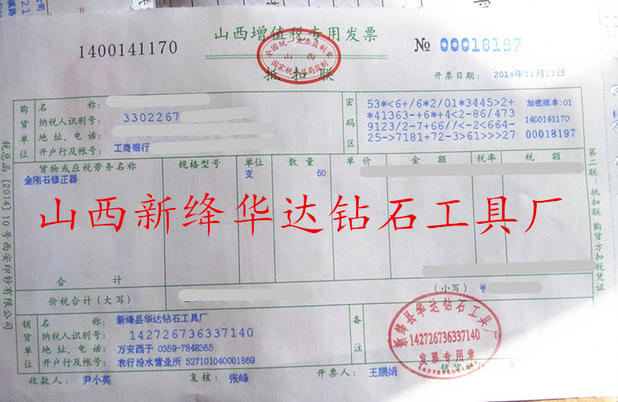 1400141170
山西增值税专用发票
全国统一发票监制章
山西
国家税务总局监制
抵扣联
№ 00018197
开票日期: 2014年11月13日
购货单位
名 称:
纳税人识别号: 3302267
地 址、电 话:
开户行及帐号: 工商银行
密码区
53*<6+/6*2/01*3445>2+ 加密版本:01
*41363-+6*+4<2-86/473 1400141170
9123/2-7+66//<-2<664-
25->7181+72-3>61>>>27 00018197
货物或应税劳务名称 规格型号 单位 数 量 单价 金 额 税率 税 额
金刚石修正器 支 60
山西新绛华达钻石工具厂
合 计
价税合计（大写） （小写）¥
销
名 称: 新绛县华达钻石工具厂
纳税人识别号: 142726736337140
地 址、电 话: 万安西于 0359-7848365
开户行及帐号: 农行汾水营业所 527101040001869
备注
新绛县华达钻石工具厂
142726736337140
发票专用章
收款人: 尹小英 复核: 张峰 开票人: 王鹏娟 销货单
税总函[2014]10号西安印钞有限公司
第二联:抵扣联 购货方扣税凭证